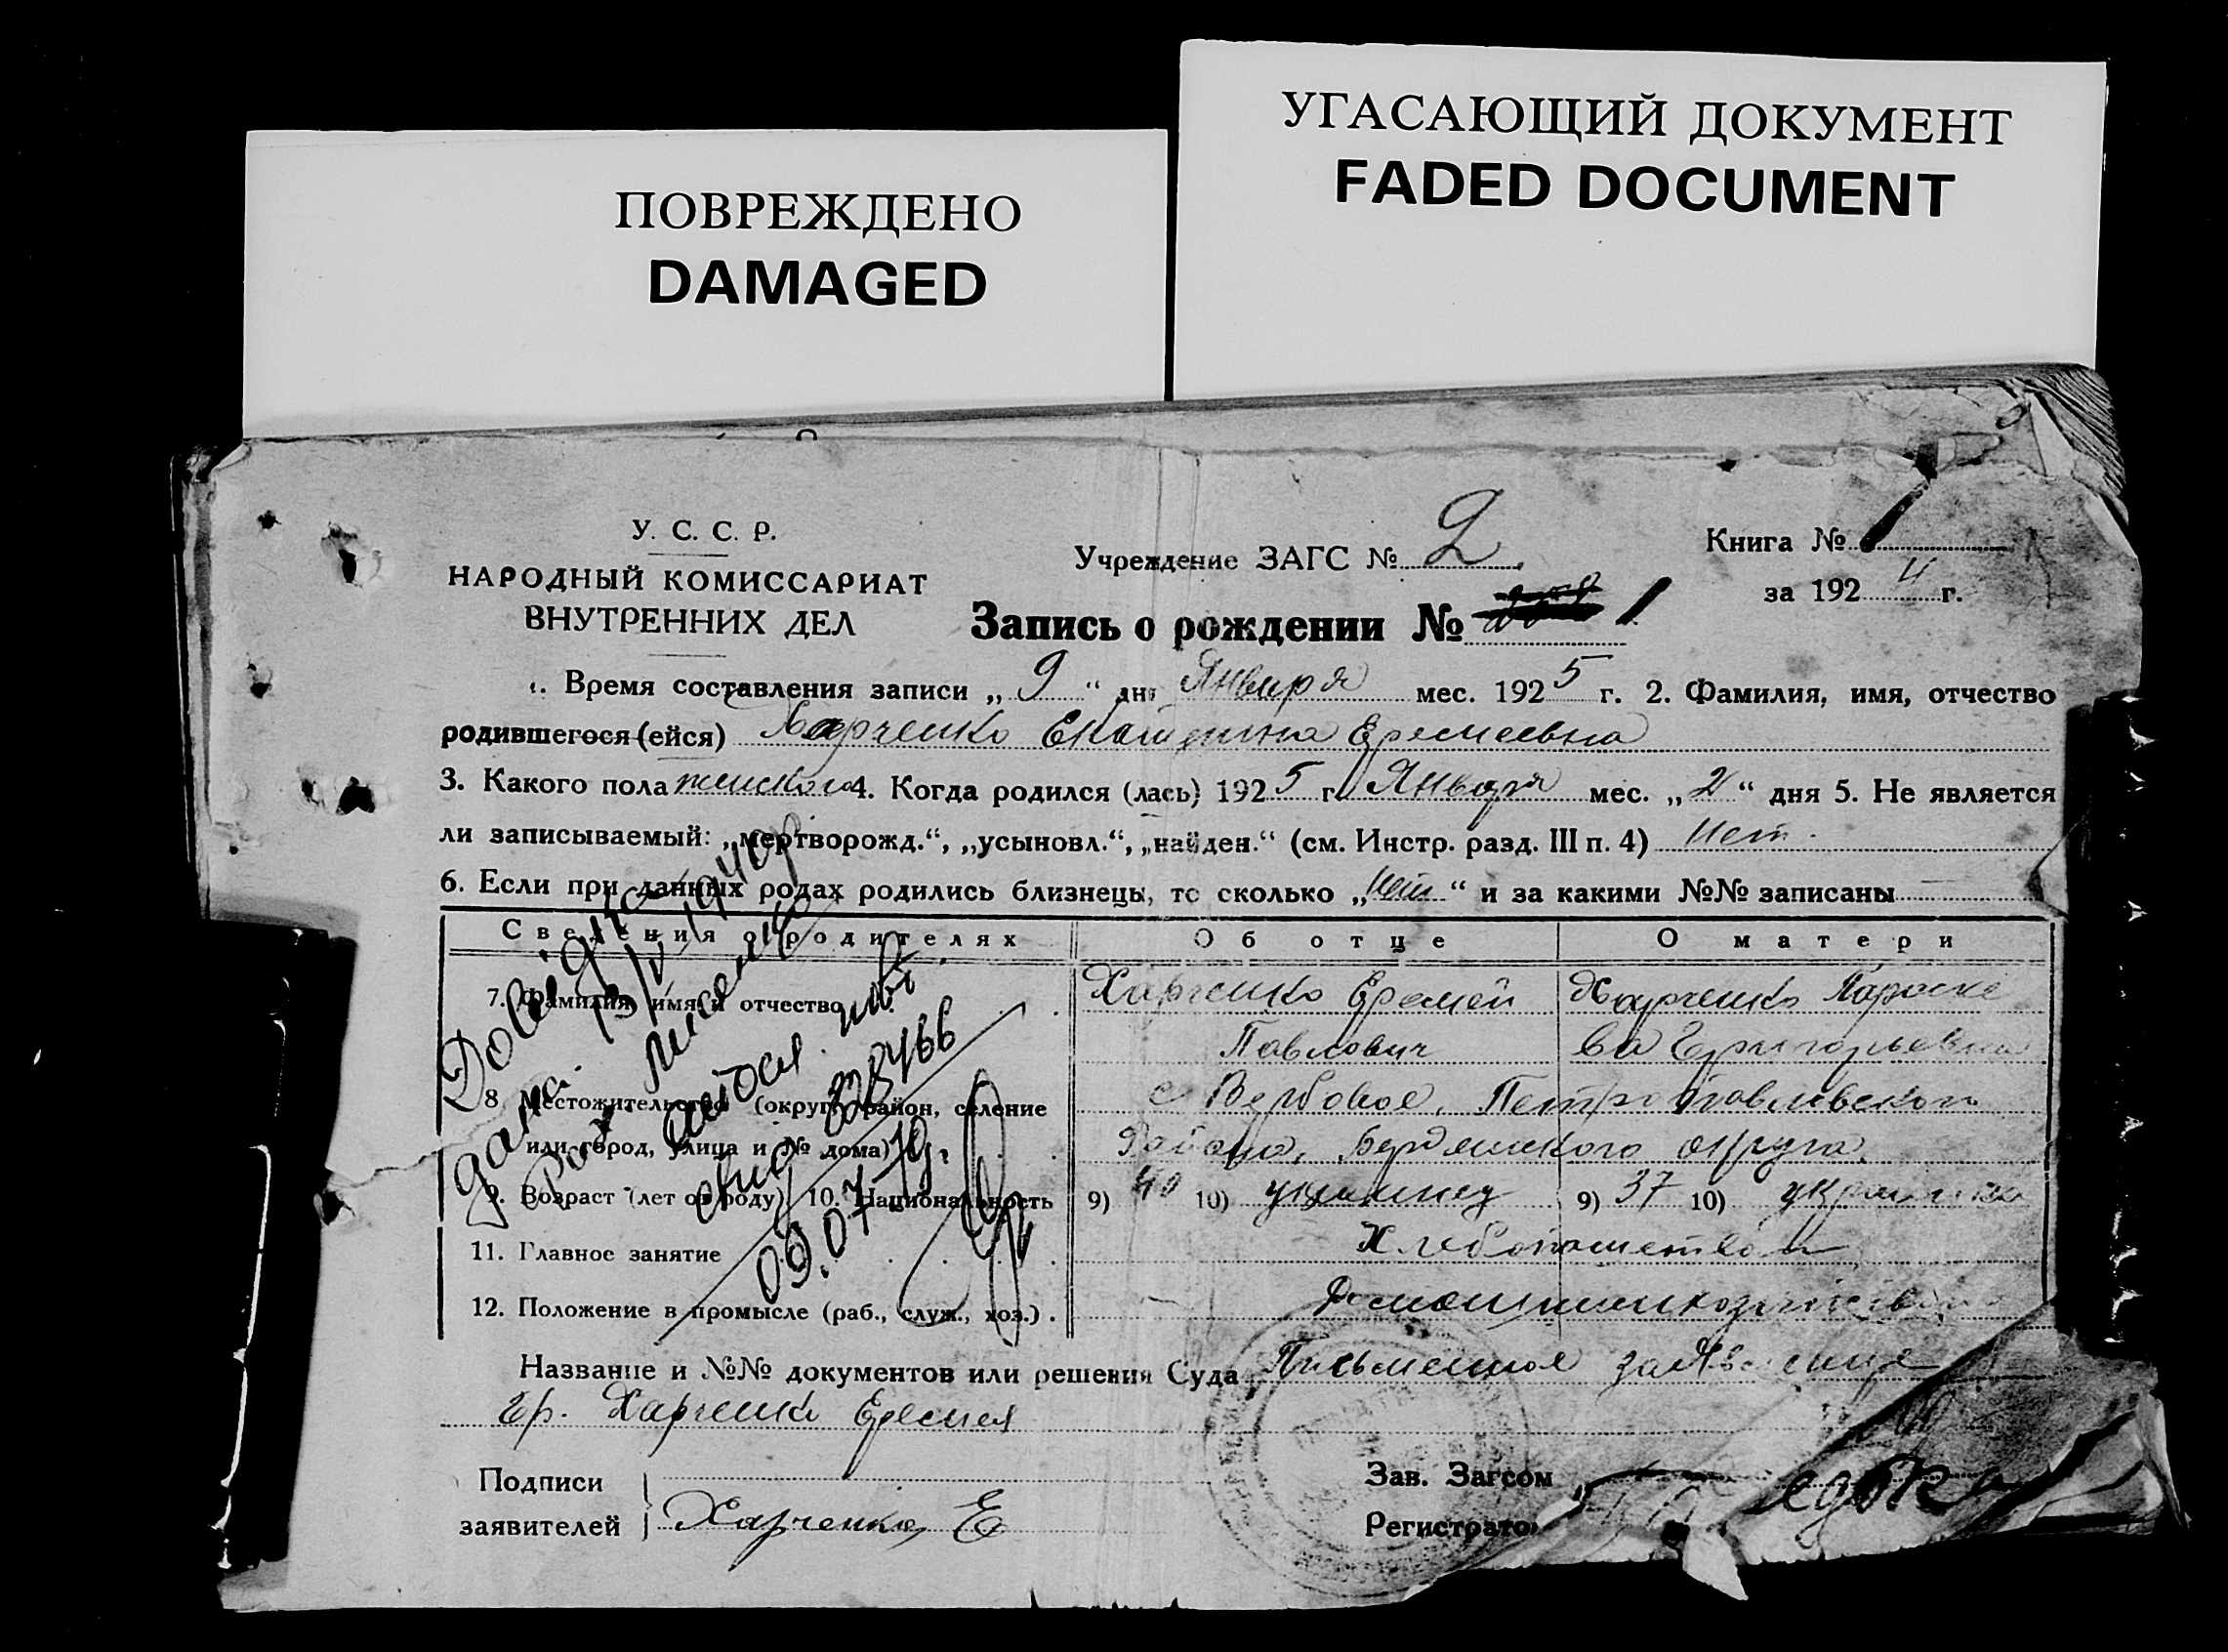 УГАСАЮЩИЙ ДОКУМЕНТ
FADED DOCUMENT
ПОВРЕЖДЕНО
DAMAGED
У. С. С. Р.
НАРОДНЫЙ КОМИССАРИАТ
ВНУТРЕННИХ ДЕЛ
Учреждение ЗАГС № 2
Книга № 1
за 1924 г.
Запись о рождении № 1
1. Время составления записи „ 9 “ дня Января мес. 1925 г. 2. Фамилия, имя, отчество
родившегося (ейся) Харченко Екатерина Еремеевна
3. Какого пола женского 4. Когда родился (лась) 1925 г. Января мес. „ 2 “ дня 5. Не является
ли записываемый: „мертворожд.“, „усыновл.“, „найден.“ (см. Инстр. разд. III п. 4) Нет.
6. Если при данных родах родились близнецы, то сколько „Нет“ и за какими №№ записаны
Сведения о родителях Об отце О матери
7. Фамилия, имя и отчество Харченко Еремей Харченко Параске
Павлович ва Григорьевна
8. Местожительство (округ, район, селение с Вербовое, Петропавловского
или город, улица и № дома) Района, Бердянского округа
9. Возраст (лет от роду) 10. Национальность 9) 40 10) украинец 9) 37 10) украинка
11. Главное занятие Хлебопашество и
12. Положение в промысле (раб., служ., хоз.)
Довідка
дана
09.07.79.
Название и №№ документов или решения Суда Письменное заявление
Гр. Харченко Еремея
Подписи
заявителей Харченко Е
Зав. Загсом
Регистратор